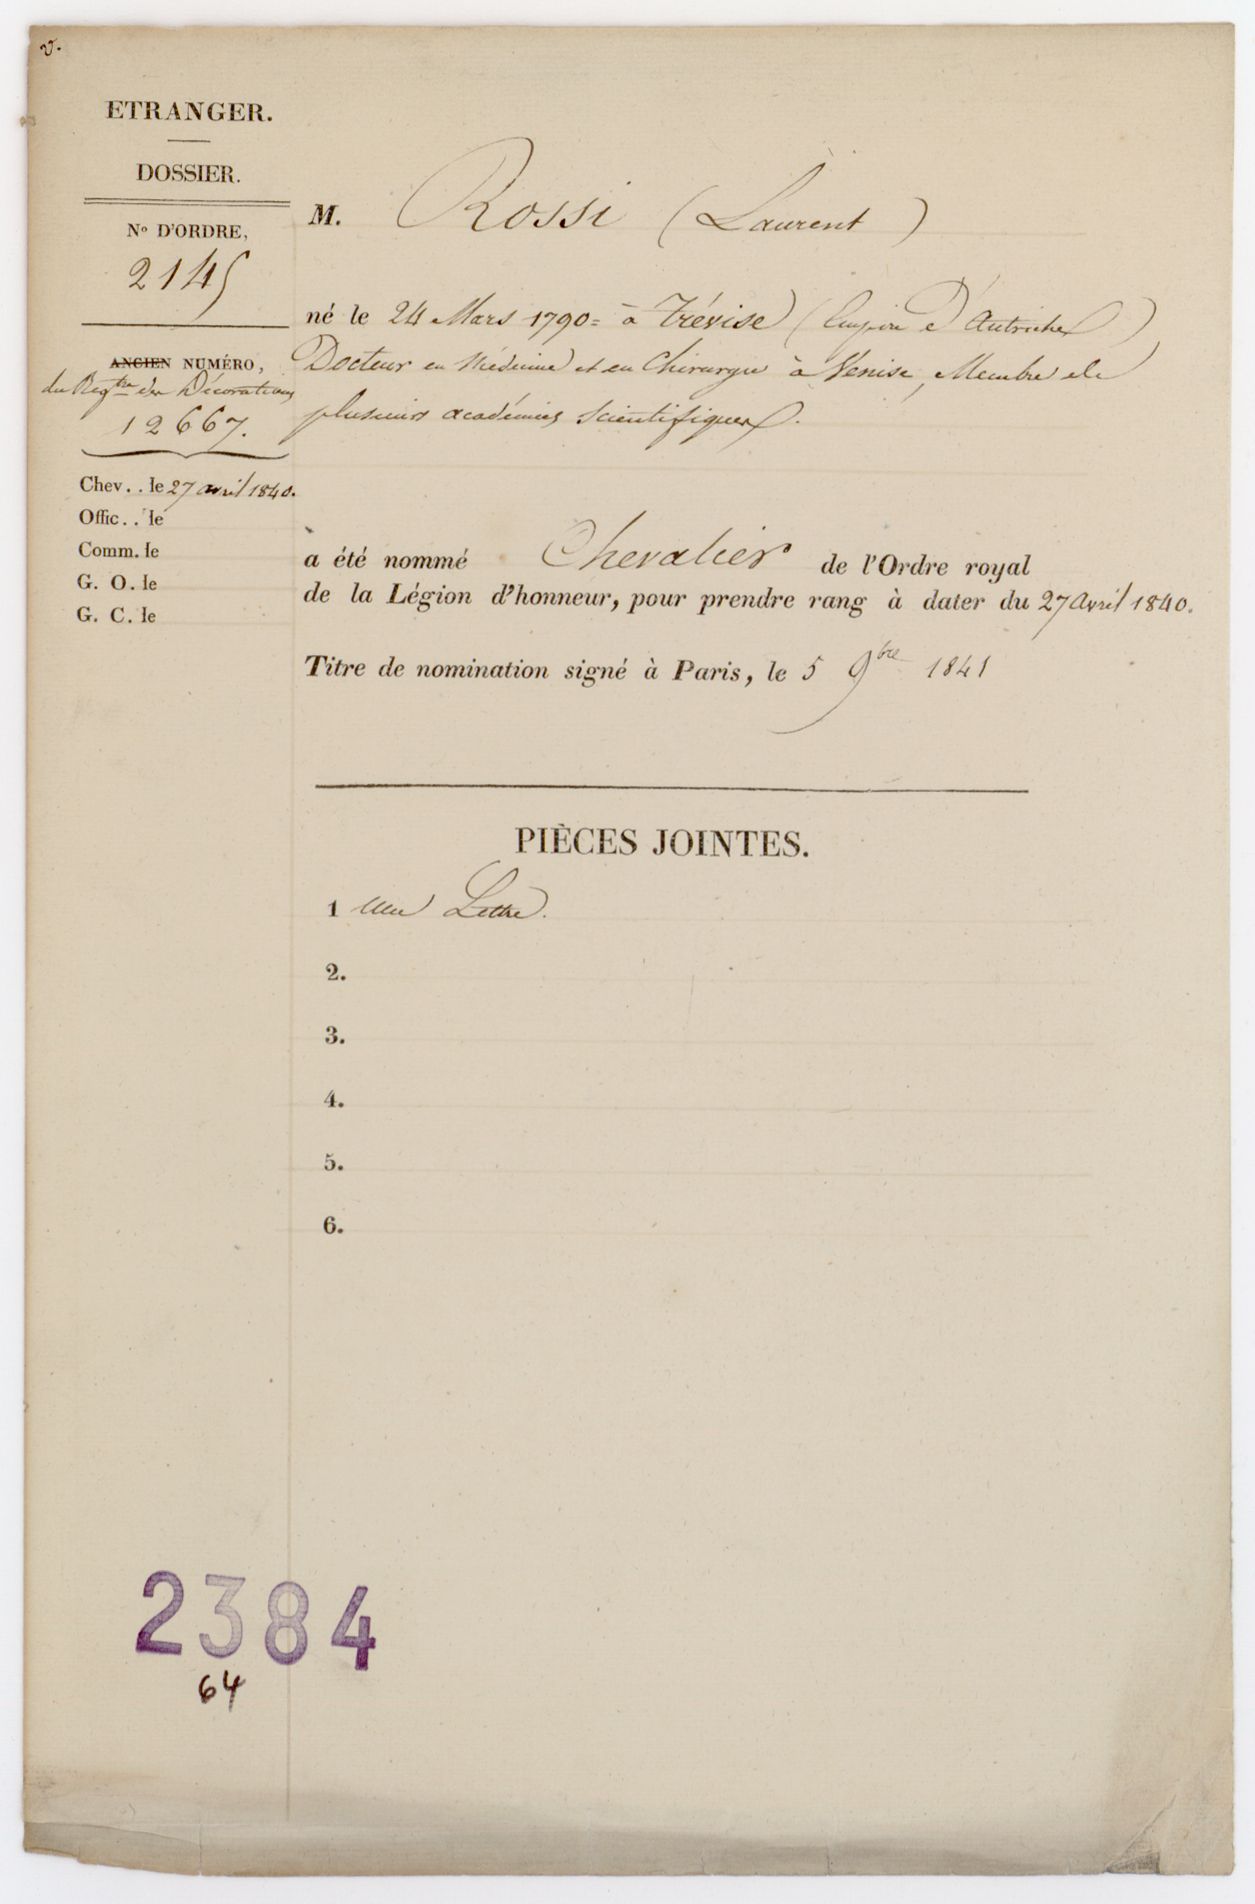 v.
ETRANGER.
DOSSIER.
No D'ORDRE,
2145
ANCIEN NUMÉRO,
du Regtre des Décorations
12667.
Chev. . le 27 avril 1840.
Offic. . le
Comm. le
G. O. le
G. C. le
M. Rossi (Laurent)
né le 24 Mars 1790 = à Trévise (Empire d'Autriche)
Docteur en Médecine et en Chirurgie à Venise, Membre de
plusieurs académies scientifiques.
a été nommé Chevalier de l'Ordre royal
de la Légion d'honneur, pour prendre rang à dater du 27 Avril 1840.
Titre de nomination signé à Paris, le 5 9bre 1841
PIÈCES JOINTES.
1 Une Lettre.
2.
3.
4.
5.
6.
2384
64